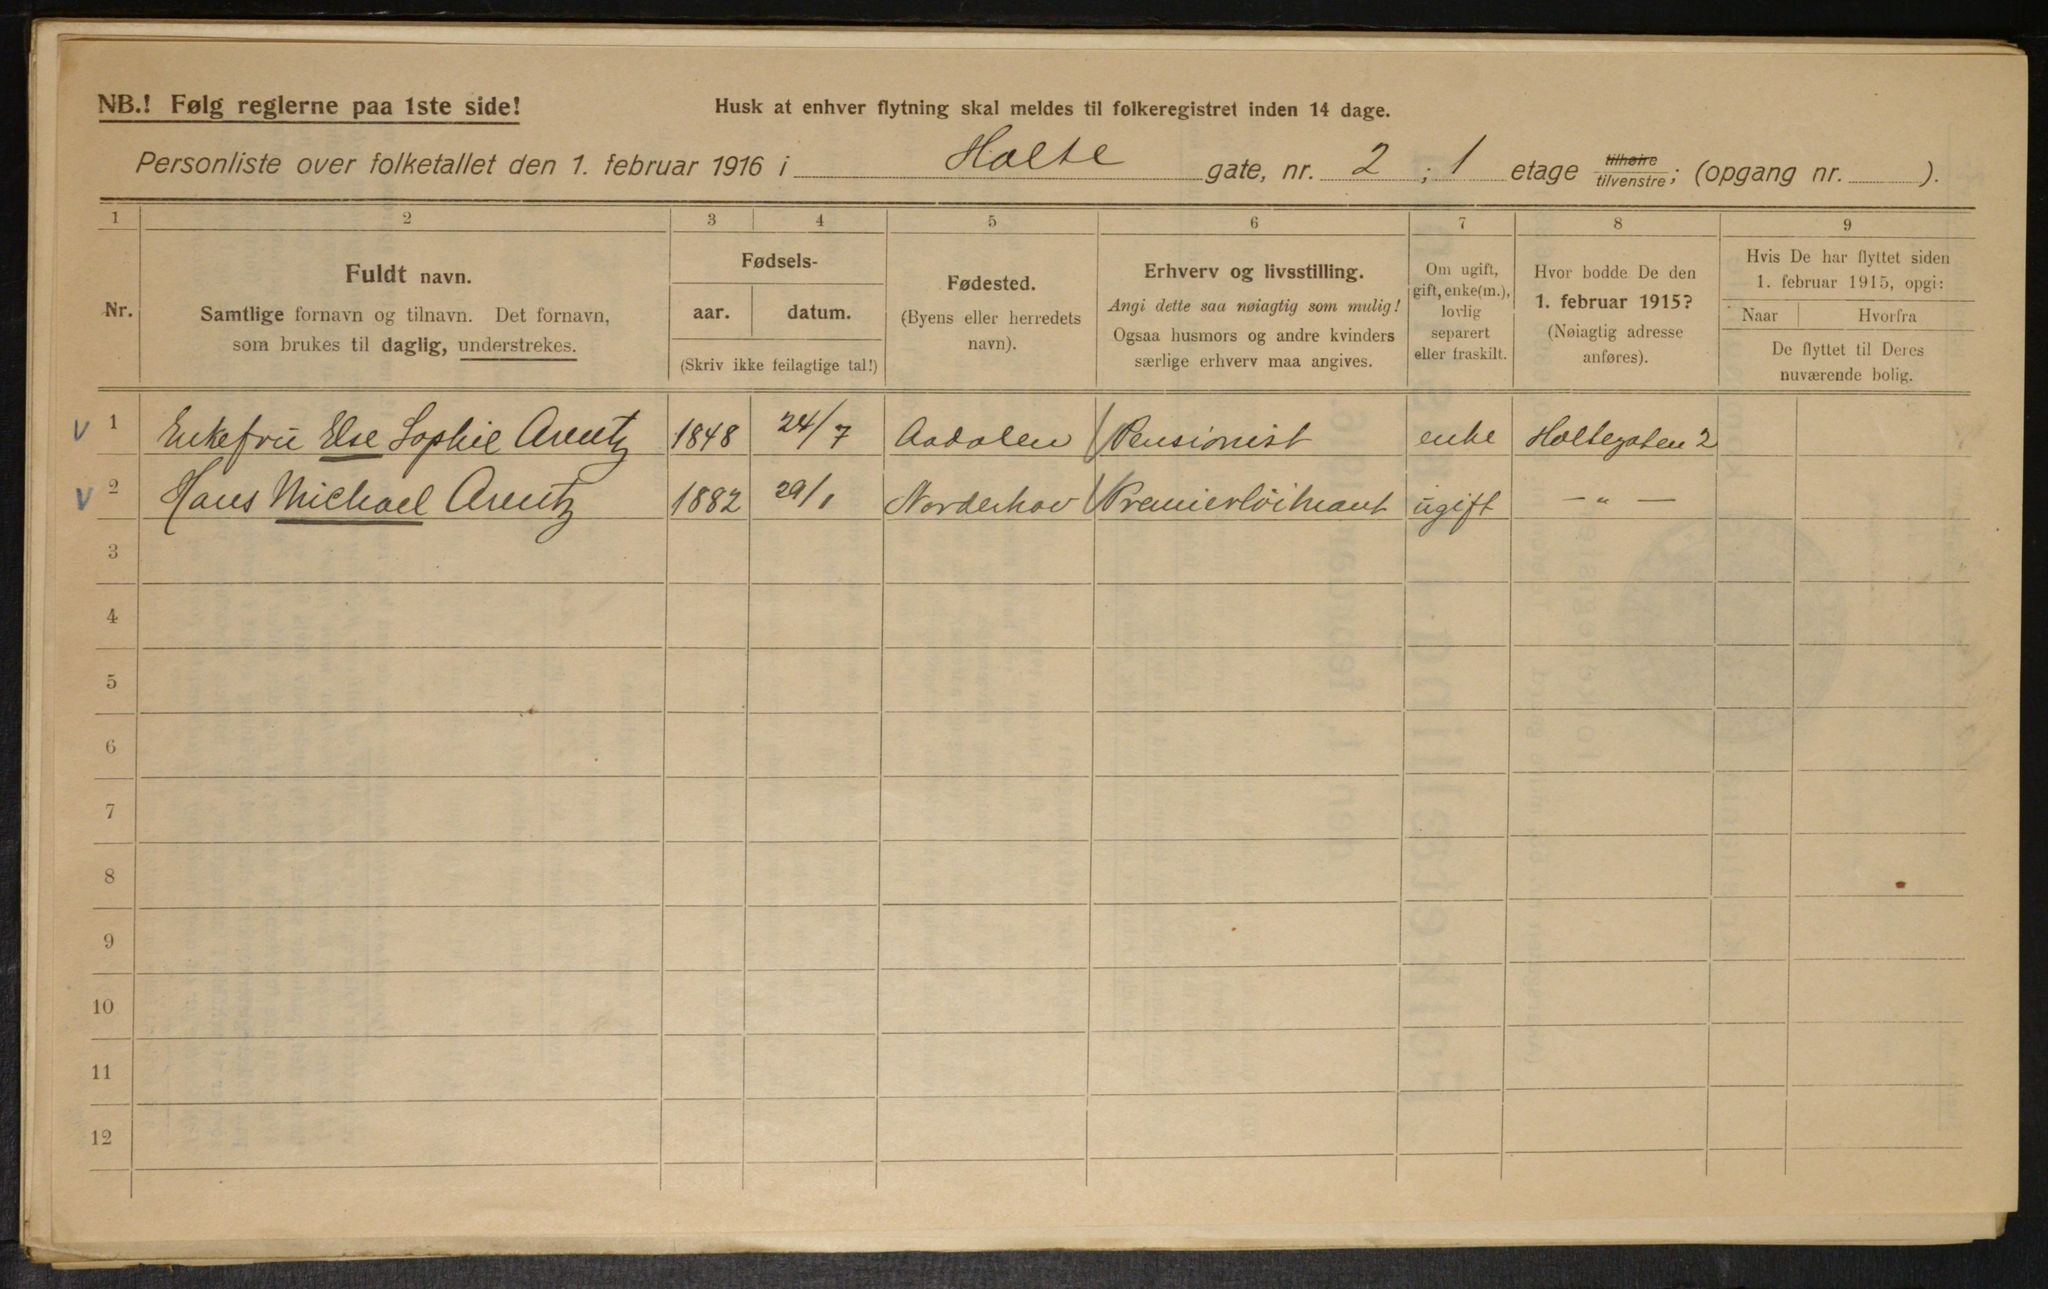 NB.! Følg reglerne paa 1ste side!
Husk at enhver flytning skal meldes til folkeregistret inden 14 dage.
Personliste over folketallet den 1. februar 1916 i Holte gate, nr. 2 ; 1 etage tilhøire tilvenstre; (opgang nr. ).
1 2 3 4 5 6 7 8 9
Nr.
Fuldt navn.
Samtlige fornavn og tilnavn. Det fornavn,
som brukes til daglig, understrekes.
Fødsels-
aar. datum.
(Skriv ikke feilagtige tal!)
Fødested.
(Byens eller herredets
navn).
Erhverv og livsstilling.
Angi dette saa nøiagtig som mulig!
Ogsaa husmors og andre kvinders
særlige erhverv maa angives.
Om ugift,
gift, enke(m.),
lovlig
separert
eller fraskilt.
Hvor bodde De den
1. februar 1915?
(Nøiagtig adresse
anføres).
Hvis De har flyttet siden
1. februar 1915, opgi:
Naar Hvorfra
De flyttet til Deres
nuværende bolig.
V 1 Enkefru Else Sophie Arentz 1848 24/7 Aadalen Pensionist enke Holtegaten 2
V 2 Hans Michael Arentz 1882 29/1 Norderhov Premierløitnant ugift — „ —
3
4
5
6
7
8
9
10
11
12